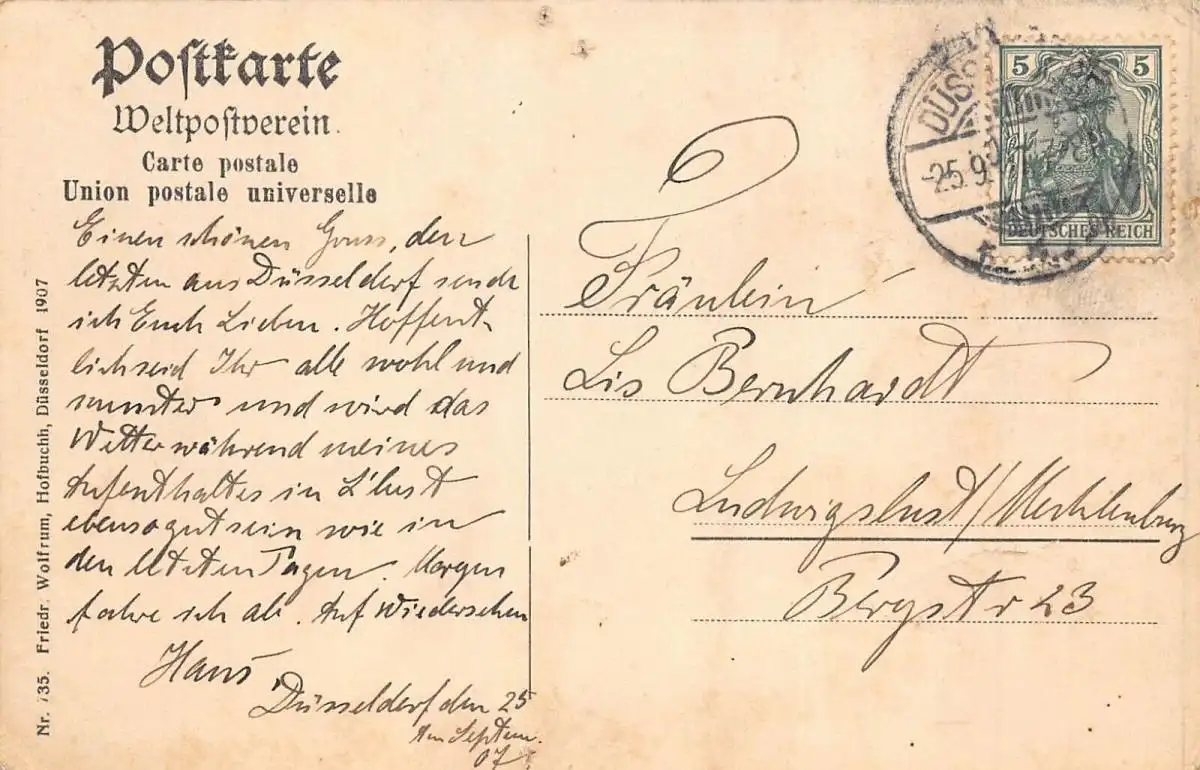 Postkarte
Weltpostverein.
Carte postale
Union postale universelle
Einen schönen Gruss, den
letzten aus Düsseldorf sende
ich Euch Lieben. Hoffent-
lich seid Ihr alle wohl und
munter und wird das
Wetter während meines
Aufenthaltes in L'lust
ebensogut sein wie in
den letzten Tagen. Morgen
fahre ich ab. Auf Wiedersehen
Hans.
Düsseldorf den 25
ten Septem.
07.
Nr. 735. Friedr. Wolfrum, Hofbuchh, Düsseldorf 1907
Fräulein
Lis Bernhardt
Ludwigslust/Mecklenburg
Bergstr 23
5 5
DEUTSCHES REICH
DÜSS
25.9